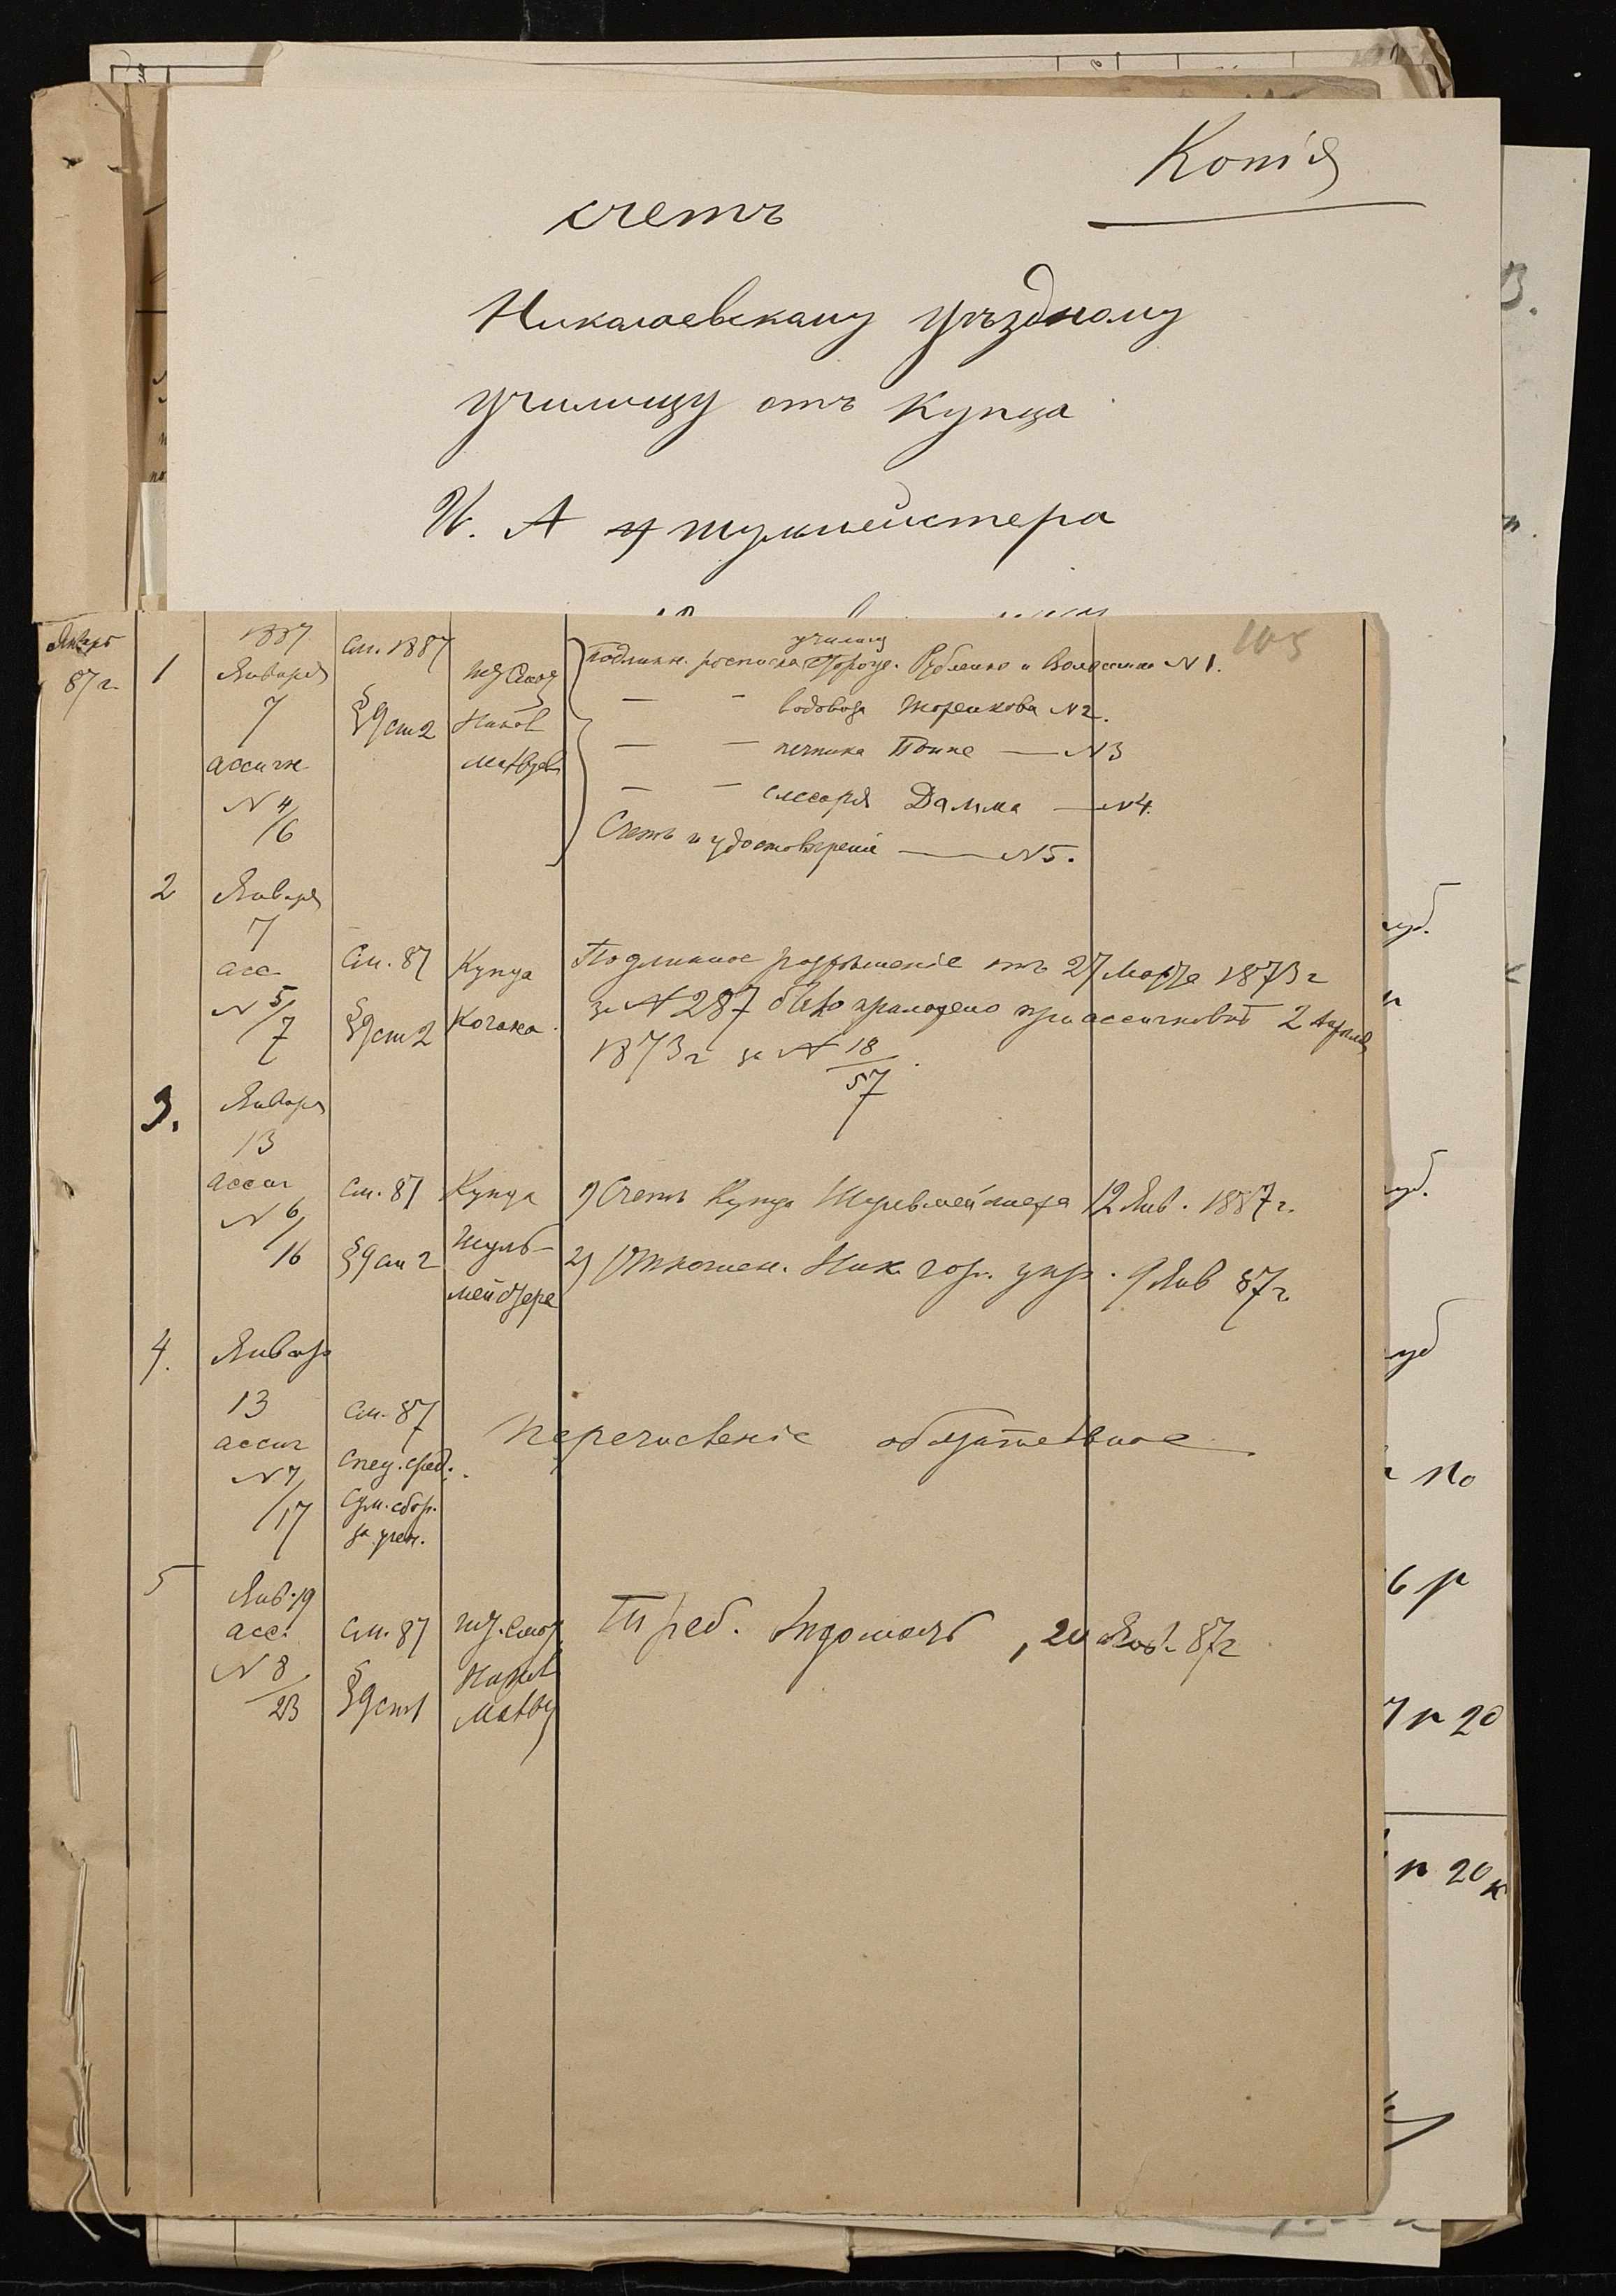 Копія
счетъ
Николаевскому уѣздному
училищу отъ Купца
И. А Шульмейстера
105
Январь
87 г.
1
1887
Января
7
ассигн
N 4/6
См. 1887
§ 9 ст 2
училищ
N 1.
— — водовоза N 2.
— — печника — N 3
— — слесаря Дальма — N 4.
Счетъ и удостовѣреніе — N 5.
2
Января
7
асс.
N 5/7
См. 87
§ 9 ст 2
Купца
Когана.
Подлинное разрѣшеніе отъ 27 Марта 1873 г
за N 287 было приложено при ассигновкѣ 2 Апрѣля
1873 г за N 18/57.
3.
Января
13
ассиг
N 6/16
См. 87
§ 9 ст 2
Купца
Шуль-
мейстера
1) Счетъ Купца Шульмейстера 12 Янв. 1887 г.
2) Отношен. Ник. гор. упр. 9 Янв 87 г.
4.
Января
13
ассиг
N 7/17
См. 87
Спец. сред.
Сум. сбор.
за учен.
Перечисленіе обязательное
5
Янв. 19
асс.
N 8/23
См. 87
§ 9 ст 1
шт. смот.
Треб. , 20 Янв. 87 г
по
6 р
7 р 20
р 20 к